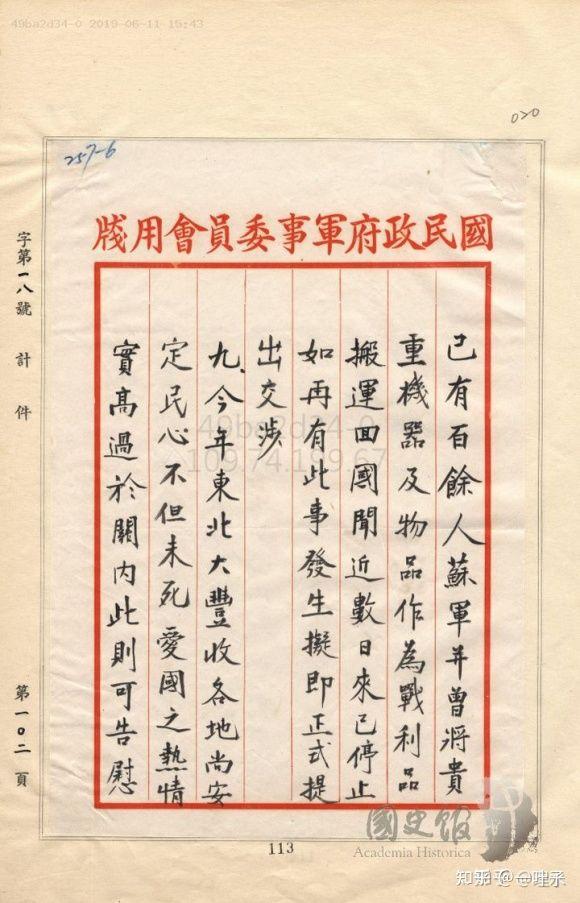 49ba2d34-0 2019-06-11 15:43
020
257-6
國民政府軍事委員會用牋
已有百餘人蘇軍並曾將貴
重機器及物品作為戰利品
搬運回國聞近數日來已停止
如再有此事發生擬即正式提
出交涉
九、今年東北大豐收各地尚安
定民心不但未死愛國之熱情
實高過於關內此則可告慰
字第一八號 計 件
第一〇二頁
49ba2d34-0
109.74.199.67
113
國史館
Academia Historica